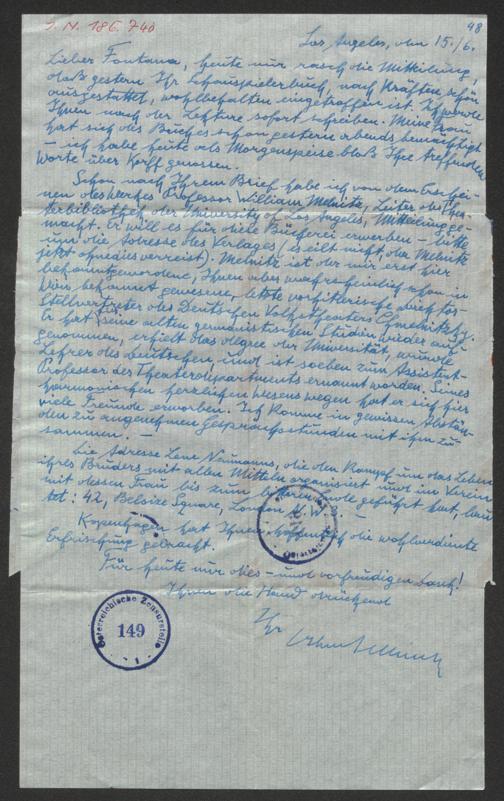 I. N. 186.740
48
Los Angeles, den 15./6.
Lieber Fontana, heute nur rasch die Mitteilung,
daß gestern Ihr Schauspielerbuch, nach Kräften schön
ausgestattet, wohlbehalten eingetroffen ist. Ich werde
Ihnen nach der Lektüre sofort schreiben. Meine Frau
hat sich des Buches schon gestern abends bemächtigt
– ich habe heute als Morgenspeise bloß Ihre treffenden
Worte über Korff genossen.
Schon nach Ihrem Brief habe ich von dem Erschei-
nen des Werkes Professor William Melnitz, Leiter der
terbibliothek der University of Los Angeles, Mitteilung ge-
macht. Er will es für diese Bücherei erwerben – bitte
um die Adresse des Verlages (es eilt nicht, da Melnitz
jetzt ohnedies verreist). Melnitz ist der mir erst hier
bekanntgewordene, Ihnen aber wahrscheinlich schon in
Wien bekannt gewesene, letzte vorhitlerische Direktor-
Stellvertreter des Deutschen Volkstheaters Chmelnitzky.
Er hat hier seine alten germanistischen Studien wieder auf-
genommen, erhielt das degree der Universität, wurde
Lehrer des Deutschen, und ist soeben zum Assistent-
Professor des Theaterdepartments ernannt worden. Seines
harmonischen herzlichen Wesens wegen hat er sich hier
viele Freunde erworben. Ich komme in gewissen Abstän-
den zu angenehmen Gesprächsstunden mit ihm zu-
sammen. –
Die Adresse Lene Neumanns, die den Kampf um das Leben
ihres Bruders mit allen Mitteln organisiert und im Verein
mit dessen Frau bis zum bitteren Ende geführt hat, lau-
tet: 42, Belsize Square, London N. W. 3. –
Kopenhagen hat Ihnen hoffentlich die wohlverdiente
Erfrischung gebracht.
Für heute nur dies – und vorfreudigen Dank!
Ihnen die Hand drückend
Ihr
Österreichische Zensurstelle
149
- 1 -